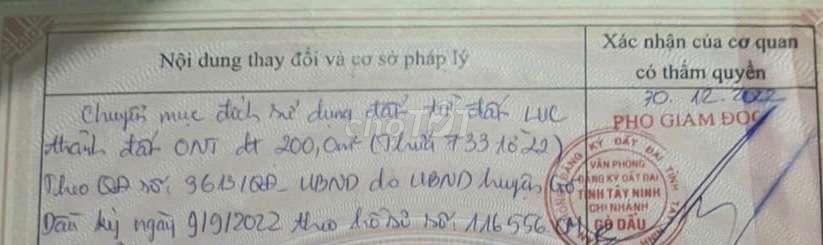 Nội dung thay đổi và cơ sở pháp lý
Xác nhận của cơ quan
có thẩm quyền
Chuyển mục đích sử dụng đất từ đất LUC
thành đất ONT dt 200,0m² (Thửa 733 tờ 22)
Theo QĐ số: 9613/QĐ-UBND do UBND huyện Gò
Dầu ký ngày 9/9/2022 theo hồ sơ số: 116556
30. 12. 2022
PHÓ GIÁM ĐỐC
VĂN PHÒNG
ĐĂNG KÝ ĐẤT ĐAI
TỈNH TÂY NINH
CHI NHÁNH
GÒ DẦU
choTỐT